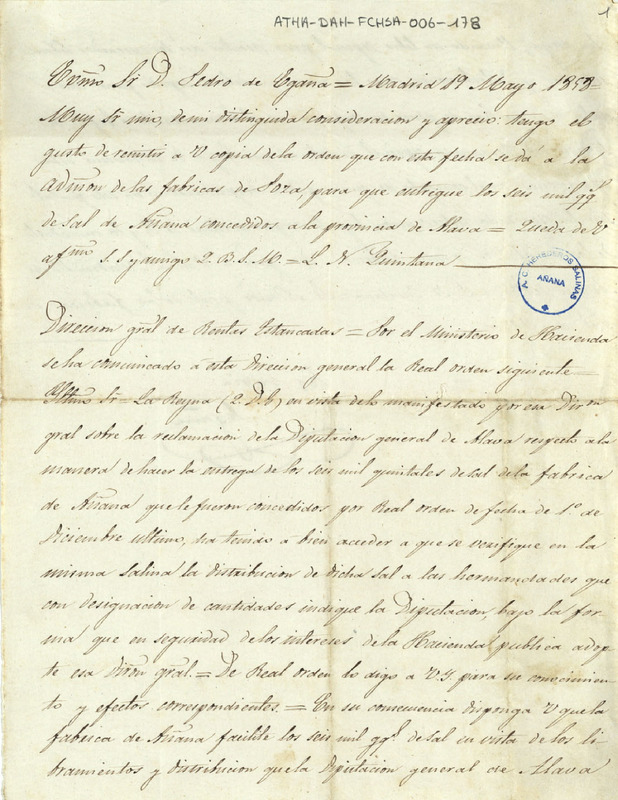 ATHA-DAH-FCHSA-006-178
1
Exmo Sr D. Pedro de Egaña = Madrid 19 Mayo 1858 =
Muy Sr mio, de mi distinguida consideracion y aprecio: tengo el
gusto de remitir a V copia de la orden que con esta fecha se dá a la
Admon de las fabricas de Poza, para que entregue los seis mil qqs
de sal de Añana concedidos a la provincia de Alava = Queda de V
afmo s. s y amigo Q. B. S. M. = L. N. Quintana
A. C. HEREDEROS SALINAS
AÑANA
Direccion gral de Rentas Estancadas = Por el Ministerio de Hacienda
se ha comunicado a esta Direccion general la Real orden siguiente =
Yltmo Sr = La Reyna (Q. D. G) en vista de lo manifestado por esa Diron
gral sobre la reclamacion de la Diputacion general de Alava respecto a la
manera de hacer la entrega de los seis mil quintales de sal de la fabrica
de Añana que le fueron concedidos por Real orden de fecha de 1º de
Diciembre ultimo, ha tenido a bien acceder a que se verifique en la
misma Salina la distribucion de dicha sal a las hermandades que
con designacion de cantidades indique la Diputacion, bajo la for-
ma que en seguridad de los intereses de la Hacienda publica adop-
te esa Diron gral. = De Real orden lo digo a V.Y. para su conocimien-
to y efectos correspondientes = En su consecuencia disponga V que la
fabrica de Añana facilite los seis mil qqs de sal en vista de los li-
bramientos y distribucion que la Diputacion general de Alava